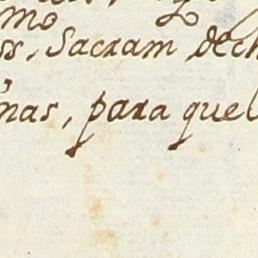 mo
ss, Sacram dech
nas, para quel